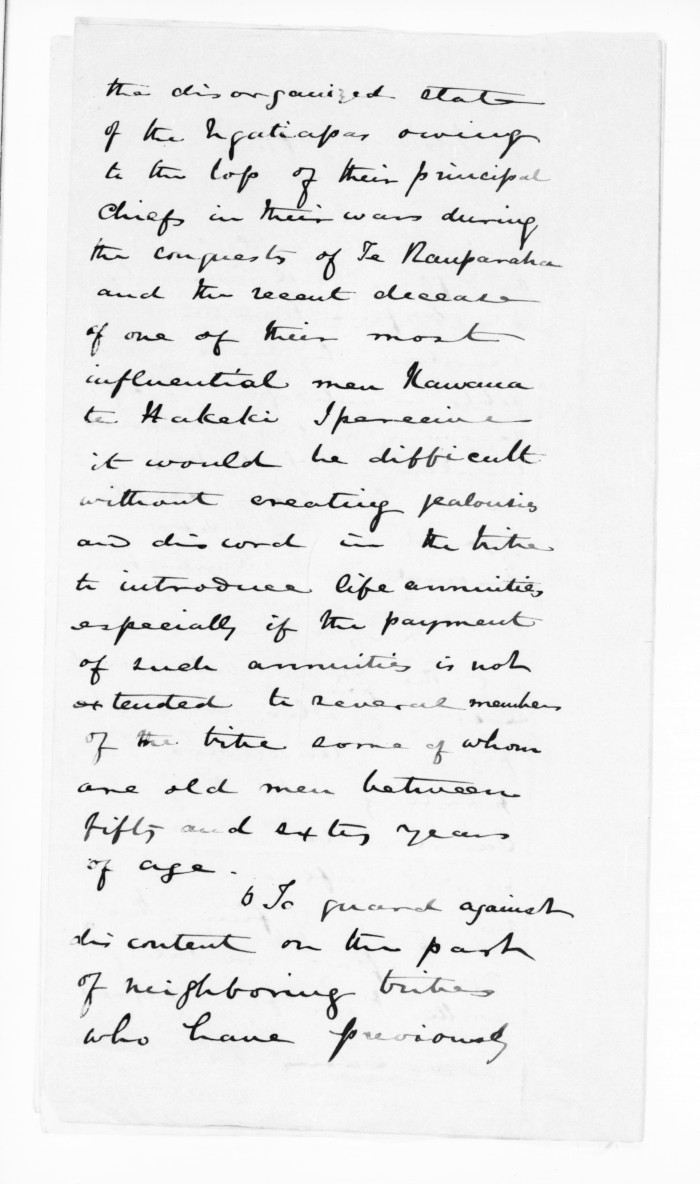 the disorganized state
of the Ngatiapas owing
to the loss of their principal
Chiefs in their wars during
the conquests of Te Rauparaha
and the recent decease
of one of their most
influential men Kawana
te Hakeki I perceive
it would be difficult
without creating jealousies
and discord in the tribe
to introduce life annuities
especially if the payment
of such annuities is not
extended to several members
of the tribe some of whom
are old men between
fifty and sixty years
of age.
6 To guard against
discontent on the part
of neighboring tribes
who have previously